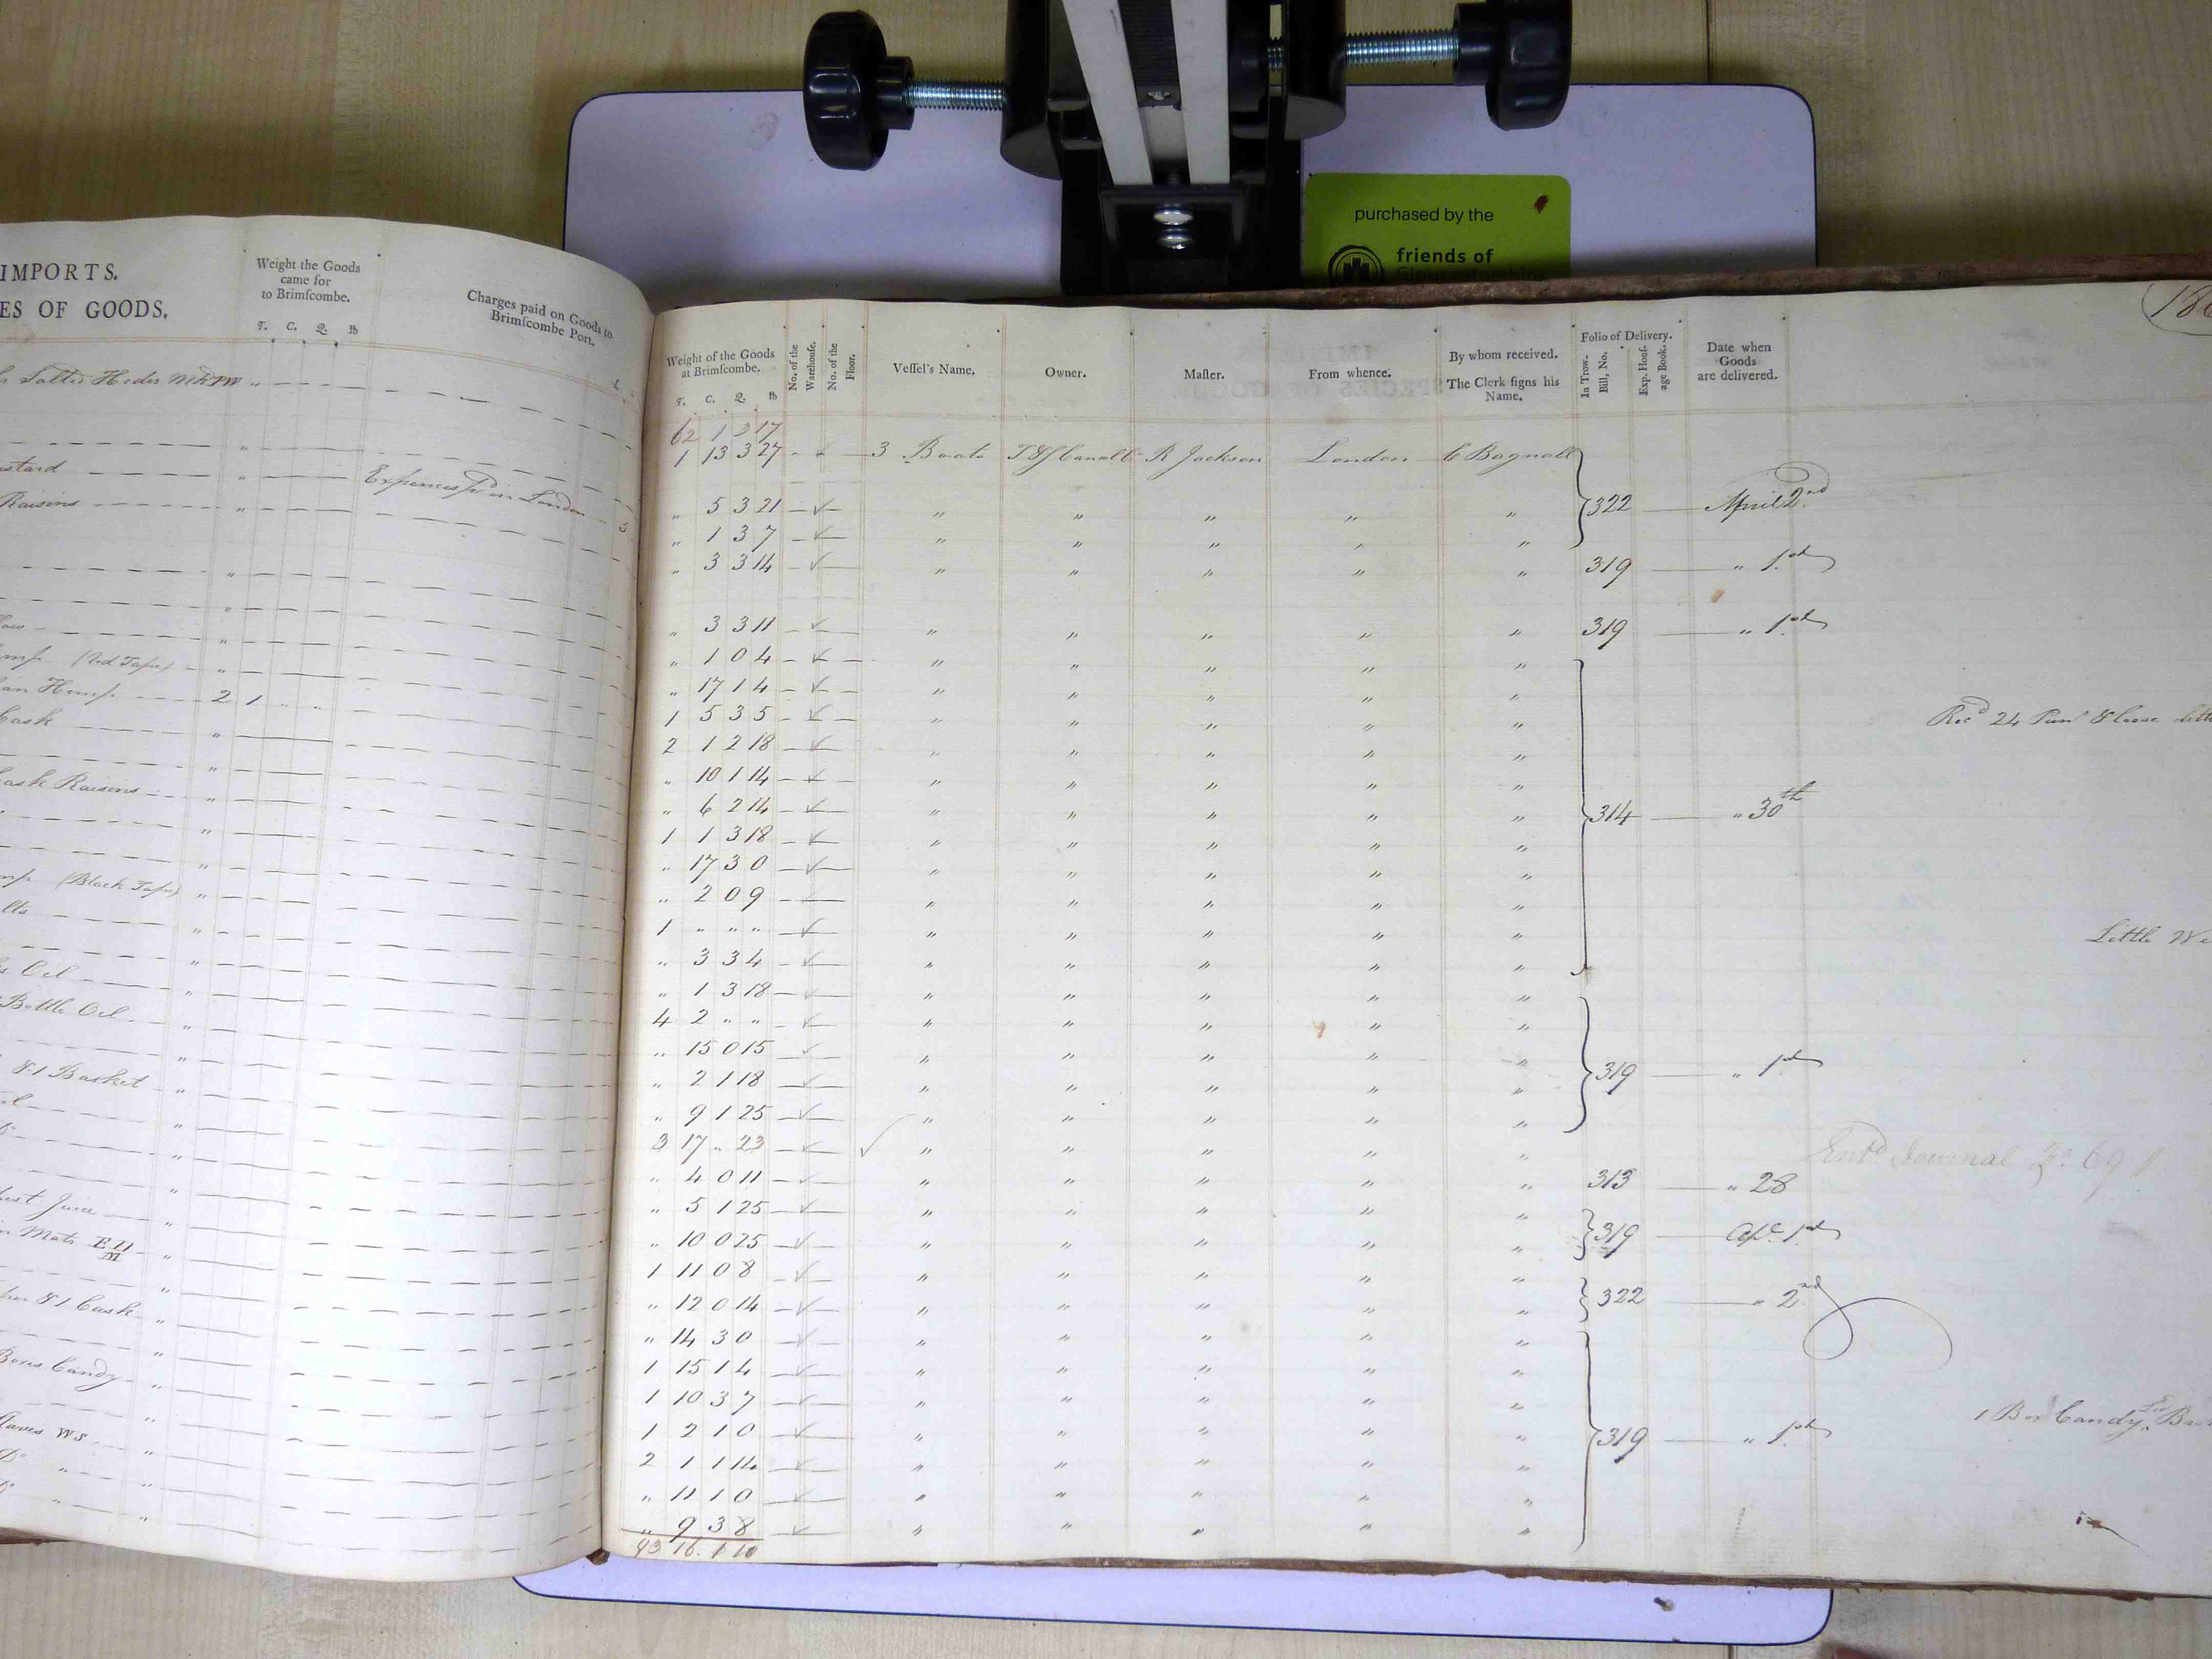 purchased by the
friends of
IMPORTS.
ES OF GOODS.
Weight the Goods
came for
to Brimſcombe.
T. C. Q. lb
Charges paid on Goods to
Brimſcombe Port.
Salted Hides
Expences pd in London 5
Raisins
(Red Tape)
Hemp 2 1 " "
Cask
Cask Raisins
(Black Tape)
Oil
Bottle Oil
& 1 Basket
Juice
Mats
& 1 Cask
Boxes Candy
WS
Weight of the Goods
at Brimſcombe.
T. C. Q. lb
No. of the
Warehouſe.
No. of the
Floor.
Veſſel's Name.
Owner.
Maſter.
From whence.
By whom received.
The Clerk ſigns his
Name.
Folio of Delivery.
In Trow.
Bill, No.
Exp. Houſ-
age Book.
Date when
Goods
are delivered.
62 1 3 17
1 13 3 27 3 Boats R Jackson London C Bagnall
" 5 3 21 " " " " " 322 April 2nd
" 1 3 7 " " " " "
" 3 3 14 " " " " " 319 " 1st
" 3 3 11 " " " " " 319 " 1st
" 1 0 4 " " " " "
" 17 1 4 " " " " "
1 5 3 5 " " " " " Recd 24
2 1 2 18 " " " " "
" 10 1 14 " " " " "
" 6 2 14 " " " " " 314 " 30th
1 1 3 18 " " " " "
" 17 3 0 " " " " "
" 2 0 9 " " " " "
1 " " " " " " " " Little
" 3 3 4 " " " " "
" 1 3 18 " " " " "
4 2 " " " " " " "
" 15 0 15 " " " " " 319 " 1st
" 2 1 18 " " " " "
" 9 1 25 " " " " "
3 17 " 23 " " " " " Entd Journal Fo 69
" 4 0 11 " " " " " 313 " 28
" 5 1 25 " " " " "
" 10 0 25 " " " " " 319 Apl 1st
1 11 0 8 " " " " "
" 12 0 14 " " " " " 322 " 2nd
" 14 3 0 " " " " "
1 15 1 4 " " " " "
1 10 3 7 " " " " "
1 2 1 0 " " " " " 319 " 1st 1 Box Candy
2 1 1 14 " " " " "
" 11 1 0 " " " " "
" 9 3 8 " " " " "
93 16 1 10